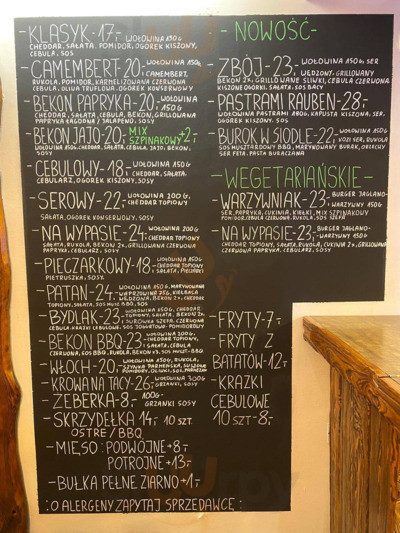 -KLASYK-17,- WOŁOWINA 150G
CHEDDAR, SAŁATA, POMIDOR, OGÓREK KISZONY,
CEBULA, SOS
-CAMEMBERT-20,- WOŁOWINA 150G,
CAMEMBERT,
RUKOLA, POMIDOR, KARMELIZOWANA CZERWONA
CEBULA, OLIWA TRUFLOWA, OGÓREK KONSERWOWY
-BEKON PAPRYKA-20,- WOŁOWINA
150G
CHEDDAR, SAŁATA, CEBULA, BEKON, GRILLOWANA
PAPRYKA ŁAGODNA / JALAPEÑO, SOSY
-BEKON JAJO-20,- MIX
SZPINAKOWY +2,-
WOŁOWINA 150G, CHEDDAR, SAŁATA, CEBULA, JAJO, BEKON,
SOSY
-CEBULOWY-18,- WOŁOWINA 150G
CHEDDAR, SAŁATA,
CEBULARZ, OGÓREK KISZONY, SOSY
-SEROWY-22,- WOŁOWINA 200G,
CHEDDAR TOPIONY
SAŁATA, OGÓREK KONSERWOWY, SOSY
-NA WYPASIE-24,- WOŁOWINA 200G
CHEDDAR TOPIONY
SAŁATA, RUKOLA, BEKON 2x, GRILLOWANA CZERWONA
PAPRYKA, CEBULARZ, SOSY
-PIECZARKOWY-18,- WOŁOWINA 150G
CHEDDAR TOPIONY
SAŁATA, PIECZARKI
PIETRUSZKA, SOSY
-PATAN-24,- WOŁOWINA 150G, MARYNOWANA
WIEPRZOWINA 35G, KIEŁBASA
WĘDZONA, BEKON 2x, CHEDDAR
TOPIONY, SAŁATA, SOS MUSZ. BBQ, SOS
-BYDLAK-23,- WOŁOWINA 150G, CHEDDAR
TOPIONY, SAŁATA, BEKON 2x,
SURÓWKA SZEFA, CZERWONA
CEBULA, KRĄŻKI CEBULOWE, SOS JOGURTOWO-POMIDOROWY
-BEKON BBQ-23,- WOŁOWINA 200G,
CHEDDAR TOPIONY,
SAŁATA, CEBULA
CZERWONA, SOS BBQ, RUKOLA, BEKON x3, SOS MUSZT-BBQ
-WŁOCH-20,- WOŁOWINA 150G, RUKOLA,
SZYNKA PARMEŃSKA, SUSZONE
POMIDORY, OLIWKI, SOS, PARMEZAN
-KROWA NA TACY-26,- WOŁOWINA 300G
GRZANKI, SOSY
-ŻEBERKA-8,- 100G-
GRZANKI SOSY
-SKRZYDEŁKA 14,- 10 SZT.
OSTRE/BBQ
-MIĘSO: PODWÓJNE+8,-
POTRÓJNE+13,-
-BUŁKA PEŁNE ZIARNO+1,-
:O ALERGENY ZAPYTAJ SPRZEDAWCĘ:
-NOWOŚĆ-
-ZBÓJ-23,- WOŁOWINA 150G, SER
WĘDZONY, GRILLOWANY
BEKON 2x, GRILLOWANE ŚLIWKI, CEBULA CZERWONA
KISZONE OGÓRKI, SAŁATA, SOS BACY
-PASTRAMI RAUBEN-28,-
WOŁOWINA PASTRAMI 180G, KAPUSTA KISZONA, SER,
OGÓREK KISZONY, SOS
-BUREK W SIODLE-22,- WOŁOWINA 150G
KOZI SER, RUKOLA
SOS MUSZTARDOWY BBQ, MARYNOWANY BURAK, ORZECHY
SER FETA, PASTA BURACZANA
-WEGETARIAŃSKIE-
-WARZYWNIAK-23,- BURGER JAGLANO-
-WARZYWNY 150G
SER, PAPRYKA, CUKINIA, KIEŁKI, MIX SZPINAKOWY
POMIDOR, CEBULA CZERWONA, RUKOLA, SOS SZEFA
-NA WYPASIE-23,- BURGER JAGLANO-
-WARZYWNY 150G
CHEDDAR TOPIONY, SAŁATA, RUKOLA, CUKINIA 2x, GRILLOWANA
CZERWONA PAPRYKA, CEBULARZ, SOSY
-FRYTY-7,-
-FRYTY Z
BATATÓW-12,-
-KRĄŻKI
CEBULOWE
10 SZT-8,-